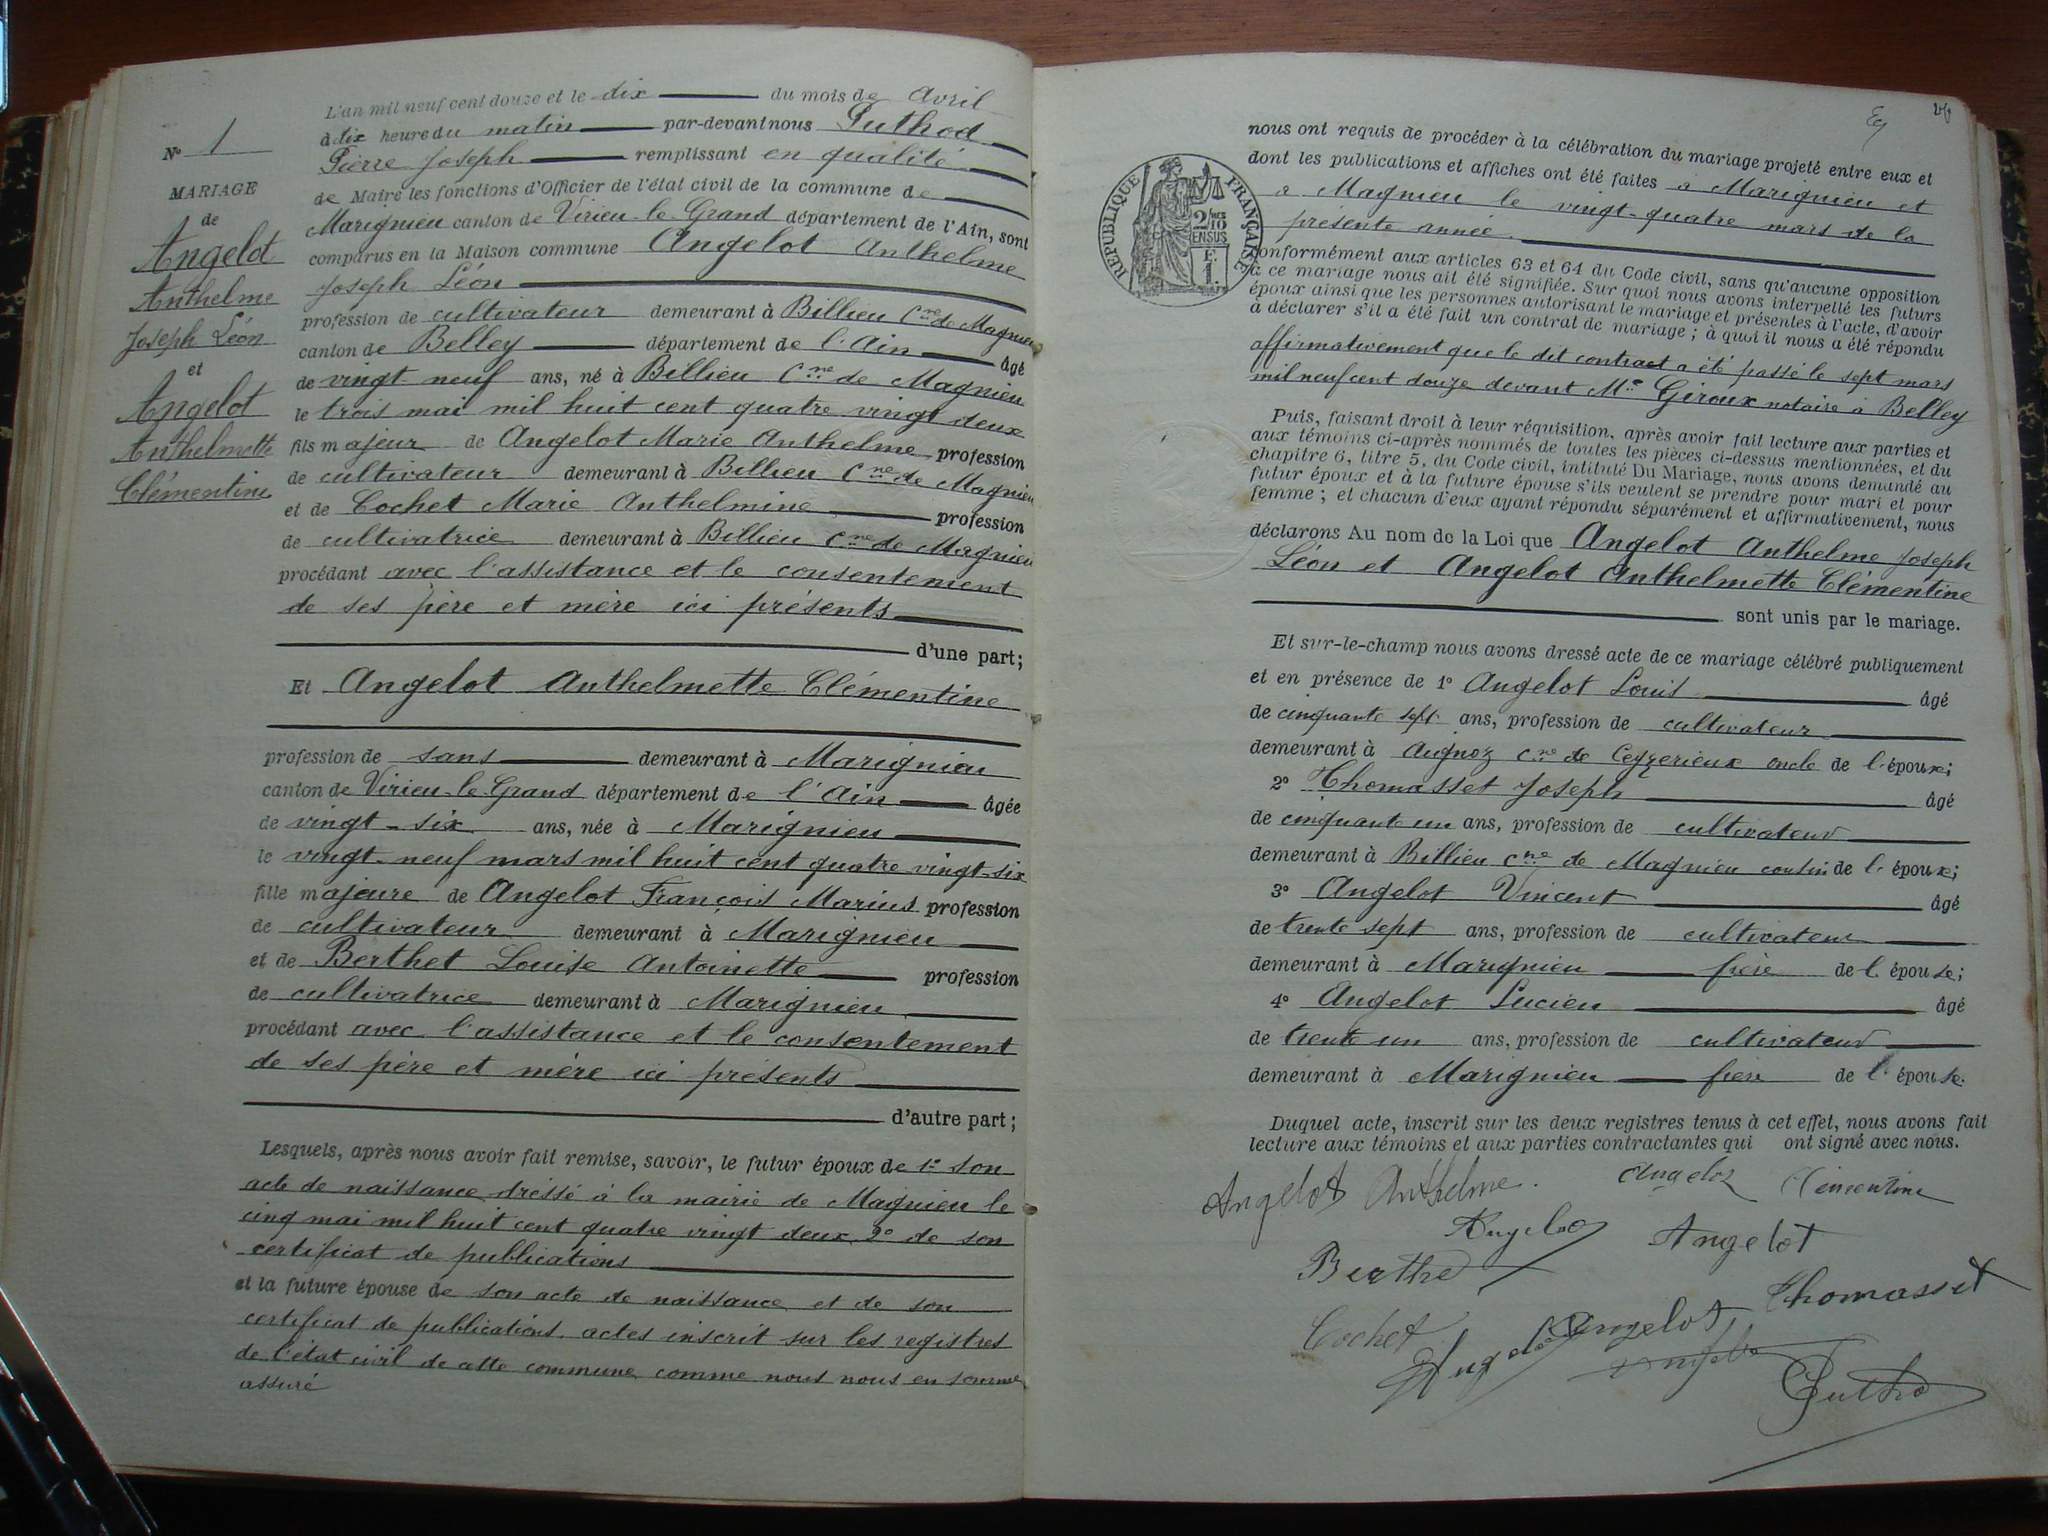 L'an mil neuf cent douze et le dix du mois de Avril
à dix heure du matin par-devant nous Puthod
Pierre Joseph remplissant en qualité
de Maire les fonctions d'Officier de l'état civil de la commune de
Marignieu canton de Virieu-le-Grand département de l'Ain, sont
comparus en la Maison commune Angelot Anthelme
Joseph Léon
profession de cultivateur demeurant à Billieu Cne de Magnieu
canton de Belley département de l'Ain âgé
de vingt-neuf ans, né à Billieu Cne de Magnieu
le trois mai mil huit cent quatre vingt deux
fils majeur de Angelot Marie Anthelme profession
de cultivateur demeurant à Billieu Cne de Magnieu
et de Cochet Marie Anthelmine profession
de cultivatrice demeurant à Billieu Cne de Magnieu
procédant avec l'assistance et le consentement
de ses père et mère ici présents
d'une part;
Et Angelot Anthelmette Clémentine
profession de sans demeurant à Marignieu
canton de Virieu-le-Grand département de l'Ain âgée
de vingt-six ans, née à Marignieu
le vingt-neuf mars mil huit cent quatre vingt-six
fille majeure de Angelot François Marius profession
de cultivateur demeurant à Marignieu
et de Berthet Louise Antoinette profession
de cultivatrice demeurant à Marignieu
procédant avec l'assistance et le consentement
de ses père et mère ici présents
d'autre part;
Lesquels, après nous avoir fait remise, savoir, le futur époux de 1° son
acte de naissance dressé à la mairie de Magnieu le
cinq mai mil huit cent quatre vingt deux 2° de son
certificat de publications
et la future épouse de son acte de naissance et de son
certificat de publications actes inscrit sur les registres
de l'état civil de cette commune comme nous nous en somme
assuré
No 1
MARIAGE
de
Angelot
Anthelme
Joseph Léon
et
Angelot
Anthelmette
Clémentine
26
nous ont requis de procéder à la célébration du mariage projeté entre eux et
dont les publications et affiches ont été faites à Marignieu et
à Magnieu le vingt-quatre mars de la
présente année
conformément aux articles 63 et 64 du Code civil, sans qu'aucune opposition
à ce mariage nous ait été signifiée. Sur quoi nous avons interpellé les futurs
époux ainsi que les personnes autorisant le mariage et présentes à l'acte, d'avoir
à déclarer s'il a été fait un contrat de mariage; à quoi il nous a été répondu
affirmativement que le dit contract a été passé le sept mars
mil neuf cent douze devant Me Giroux notaire à Belley
Puis, faisant droit à leur réquisition, après avoir fait lecture aux parties et
aux témoins ci-après nommés de toutes les pièces ci-dessus mentionnées, et du
chapitre 6, titre 5, du Code civil, intitulé Du Mariage, nous avons demandé au
futur époux et à la future épouse s'ils veulent se prendre pour mari et pour
femme; et chacun d'eux ayant répondu séparément et affirmativement, nous
déclarons Au nom de la Loi que Angelot Anthelme Joseph
Léon et Angelot Anthelmette Clémentine
sont unis par le mariage.
Et sur-le-champ nous avons dressé acte de ce mariage célébré publiquement
et en présence de 1° Angelot Louis âgé
de cinquante sept ans, profession de cultivateur
demeurant à Aignoz Cne de Ceyzerieux oncle de l'épouse;
2° Thomasset Joseph âgé
de cinquante un ans, profession de cultivateur
demeurant à Billieu Cne de Magnieu cousin de l'époux;
3° Angelot Vincent âgé
de trente sept ans, profession de cultivateur
demeurant à Marignieu frère de l'épouse;
4° Angelot Lucien âgé
de trente un ans, profession de cultivateur
demeurant à Marignieu frère de l'épouse.
Duquel acte, inscrit sur les deux registres tenus à cet effet, nous avons fait
lecture aux témoins et aux parties contractantes qui ont signé avec nous.
Angelot Anthelme. Angelot Clémentine
Angelot Angelot
Berthet
Thomasset
Cochet Angelot Angelot
Angelot
Puthod
RÉPUBLIQUE FRANÇAISE
2/10
EN SUS
1 F.